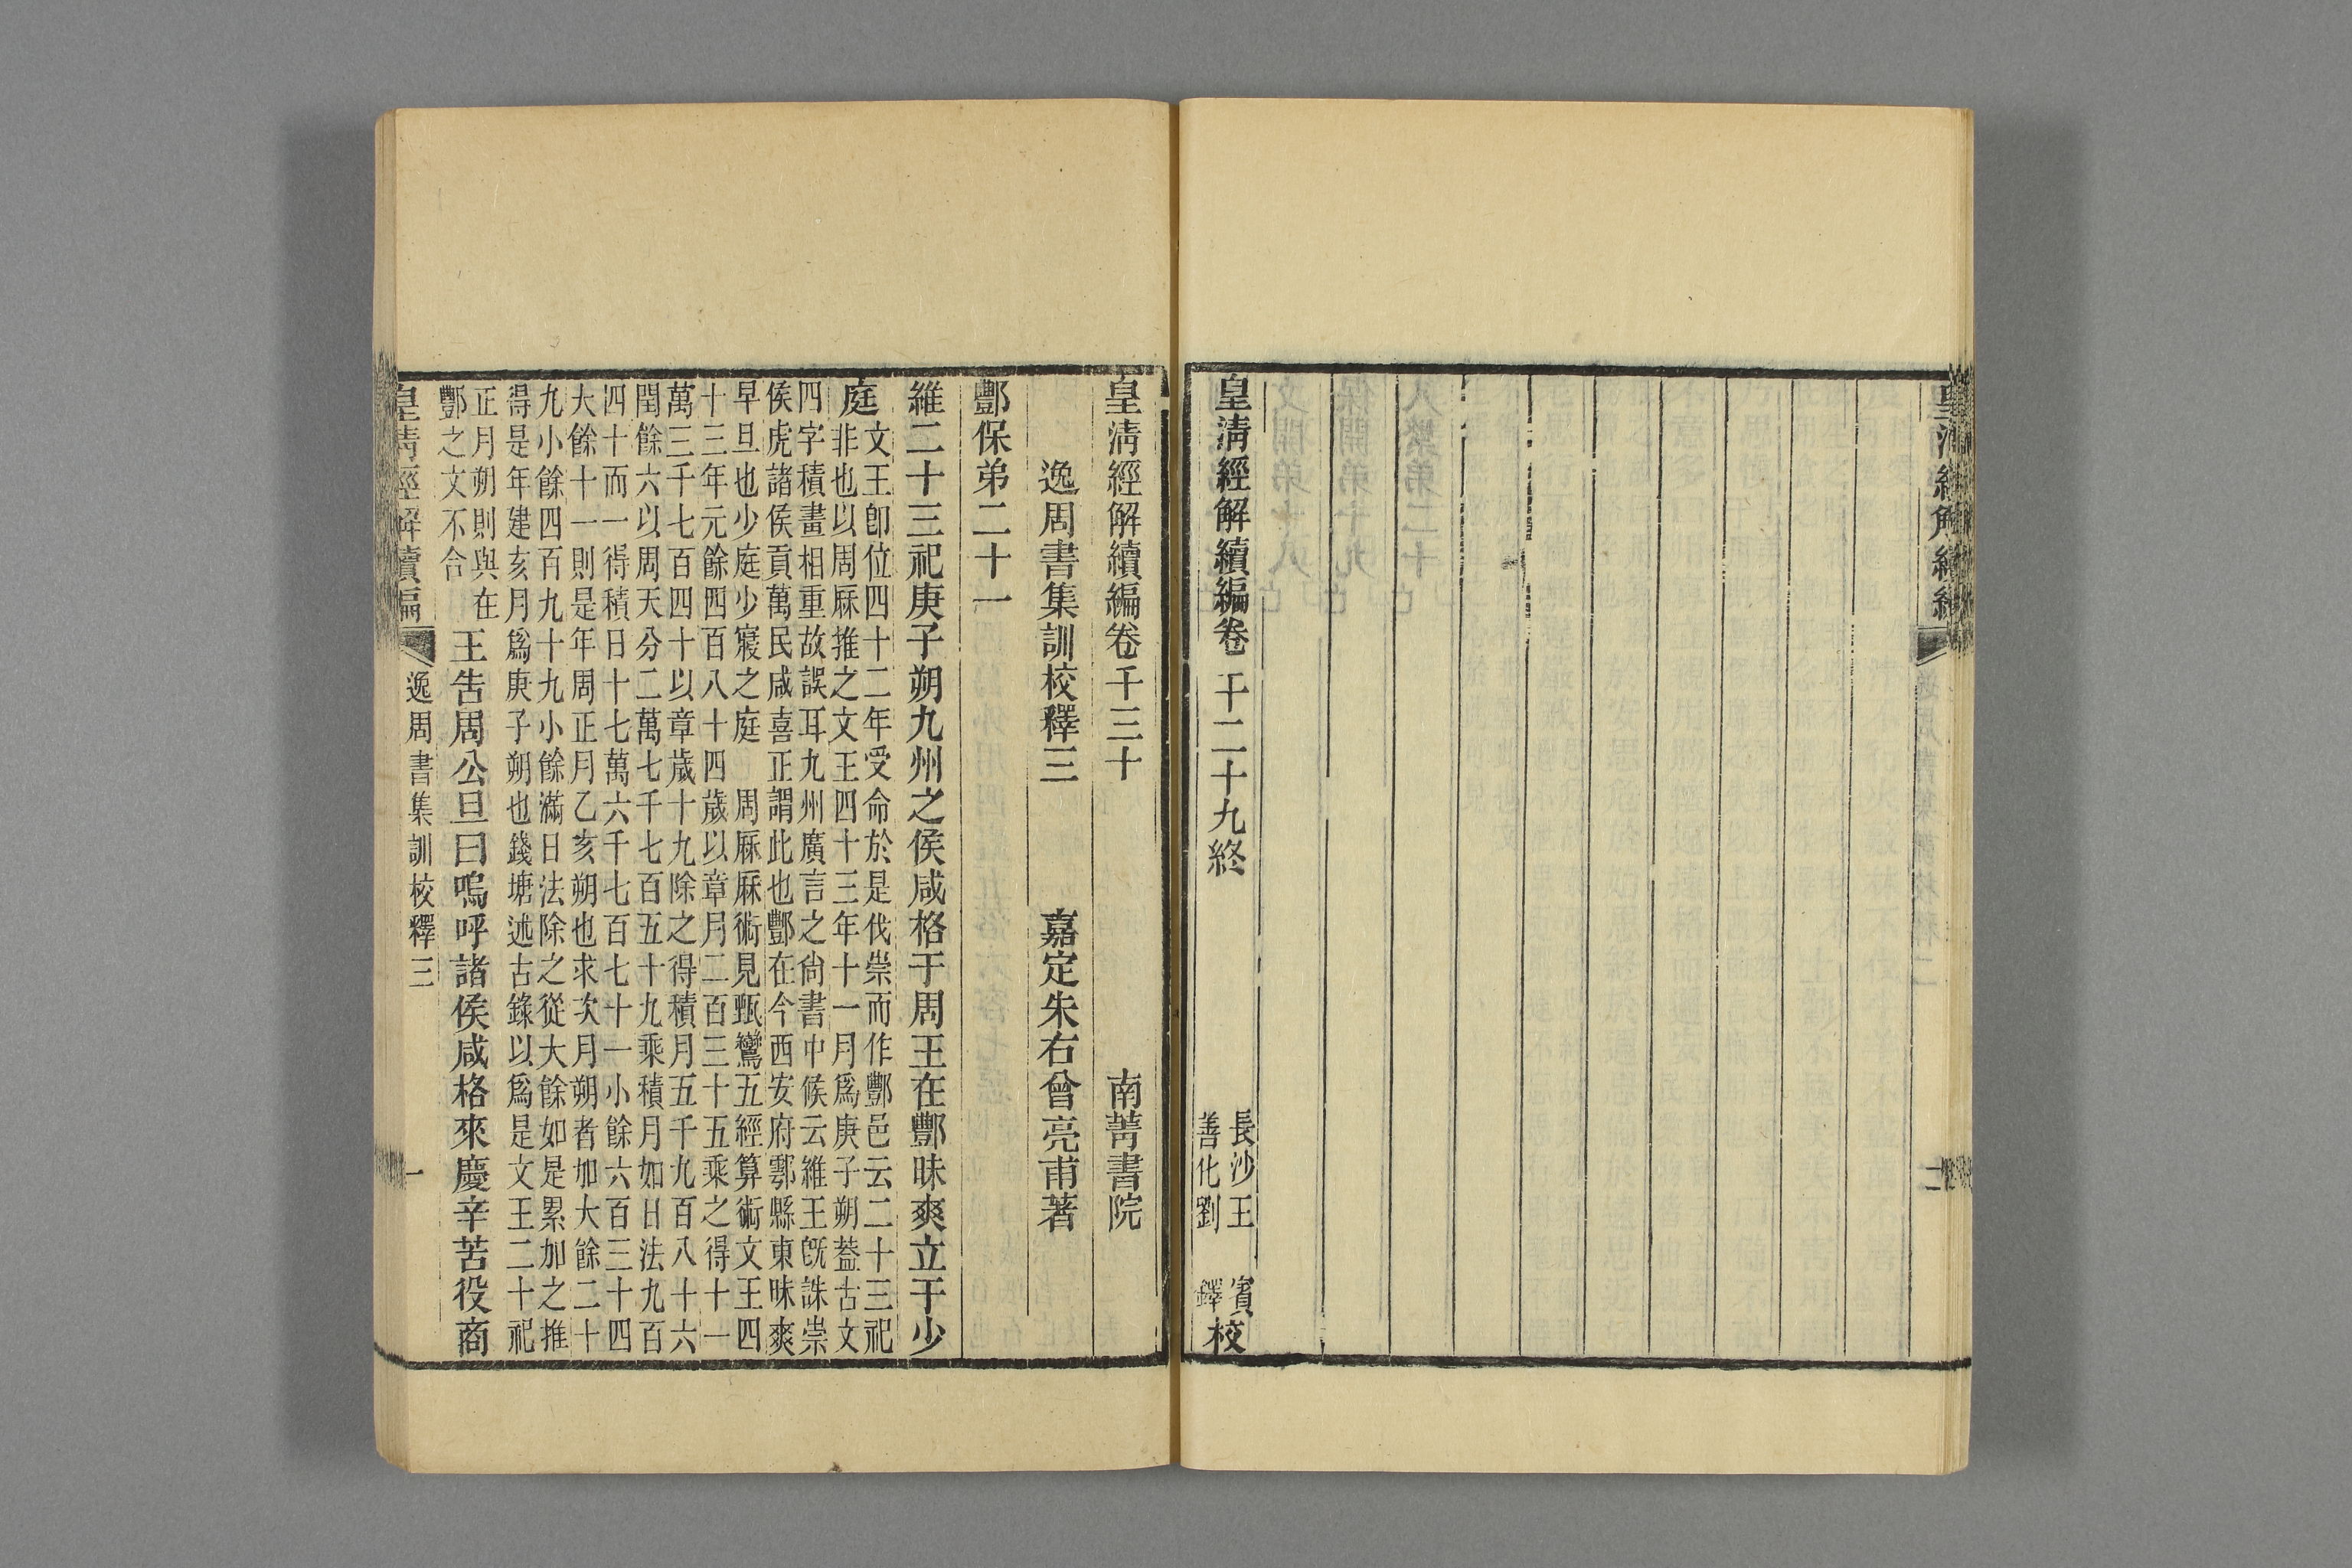 皇清經解續編卷千二十九終
長沙王賓
善化劉鐸校
皇清經解續編卷千三十 南菁書院
逸周書集訓校釋三 嘉定朱右曾亮甫著
酆保弟二十一
維二十三祀庚子朔九州之侯咸格于周王在酆昧爽立于少
庭
文王卽位四十二年受命於是伐崇而作酆邑云二十三祀
非也以周厤推之文王四十三年十一月爲庚子朔葢古文
四字積畫相重故誤耳九州廣言之尙書中候云維王旣誅崇
侯虎諸侯貢萬民咸喜正謂此也酆在今西安府鄠縣東昧爽
早旦也少庭少寢之庭 周厤厤術見甄鸞五經算術文王四
十三年元餘四百八十四歲以章月二百三十五乘之得十一
萬三千七百四十以章歲十九除之得積月五千九百八十六
閏餘六以周天分二萬七千七百五十九乘積月如日法九百
四十而一得積日十七萬六千七百七十一小餘六百三十四
大餘十一則是年周正月乙亥朔也求次月朔者加大餘二十
九小餘四百九十九小餘滿日法除之從大餘如是累加之推
得是年建亥月爲庚子朔也錢塘述古錄以爲是文王二十祀
正月朔則與在
酆之文不合
王告周公旦曰嗚呼諸侯咸格來慶辛苦役商
皇清經解續編 逸周書集訓校釋三 一